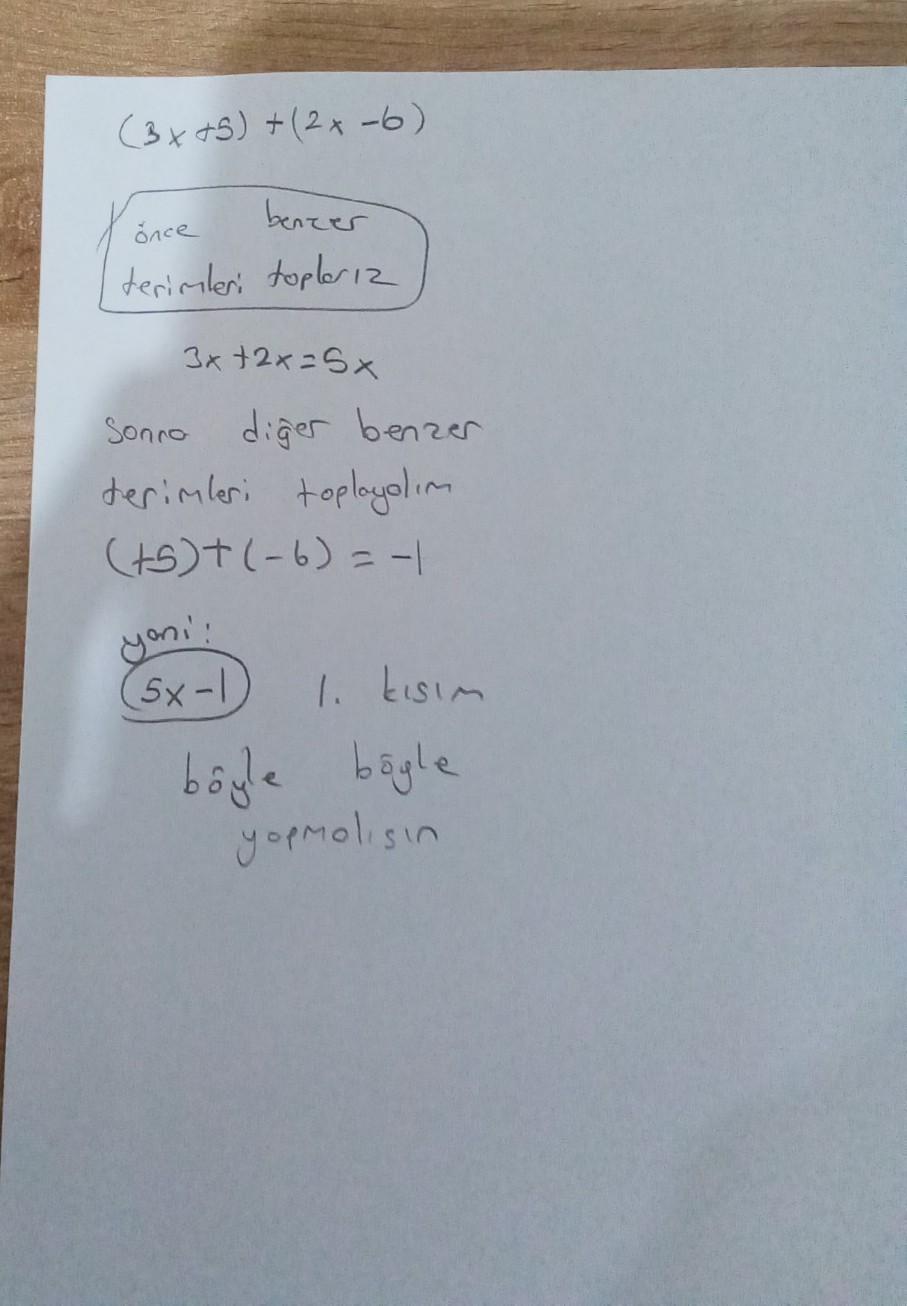 (3x+5) +(2x -6)
önce benzer
terimleri toplarız
3x +2x = 5x
Sonra diğer benzer
terimleri toplayalım
(+5)+(-6) = -1
yani:
5x-1 1. kısım
böyle böyle
yapmalısın